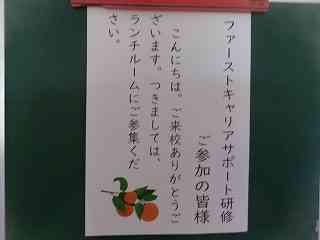 ファーストキャリアサポート研修
ご参加の皆様
こんにちは。ご来校ありがとうご
ざいます。つきましては、
ランチルームにご参集くだ
さい。